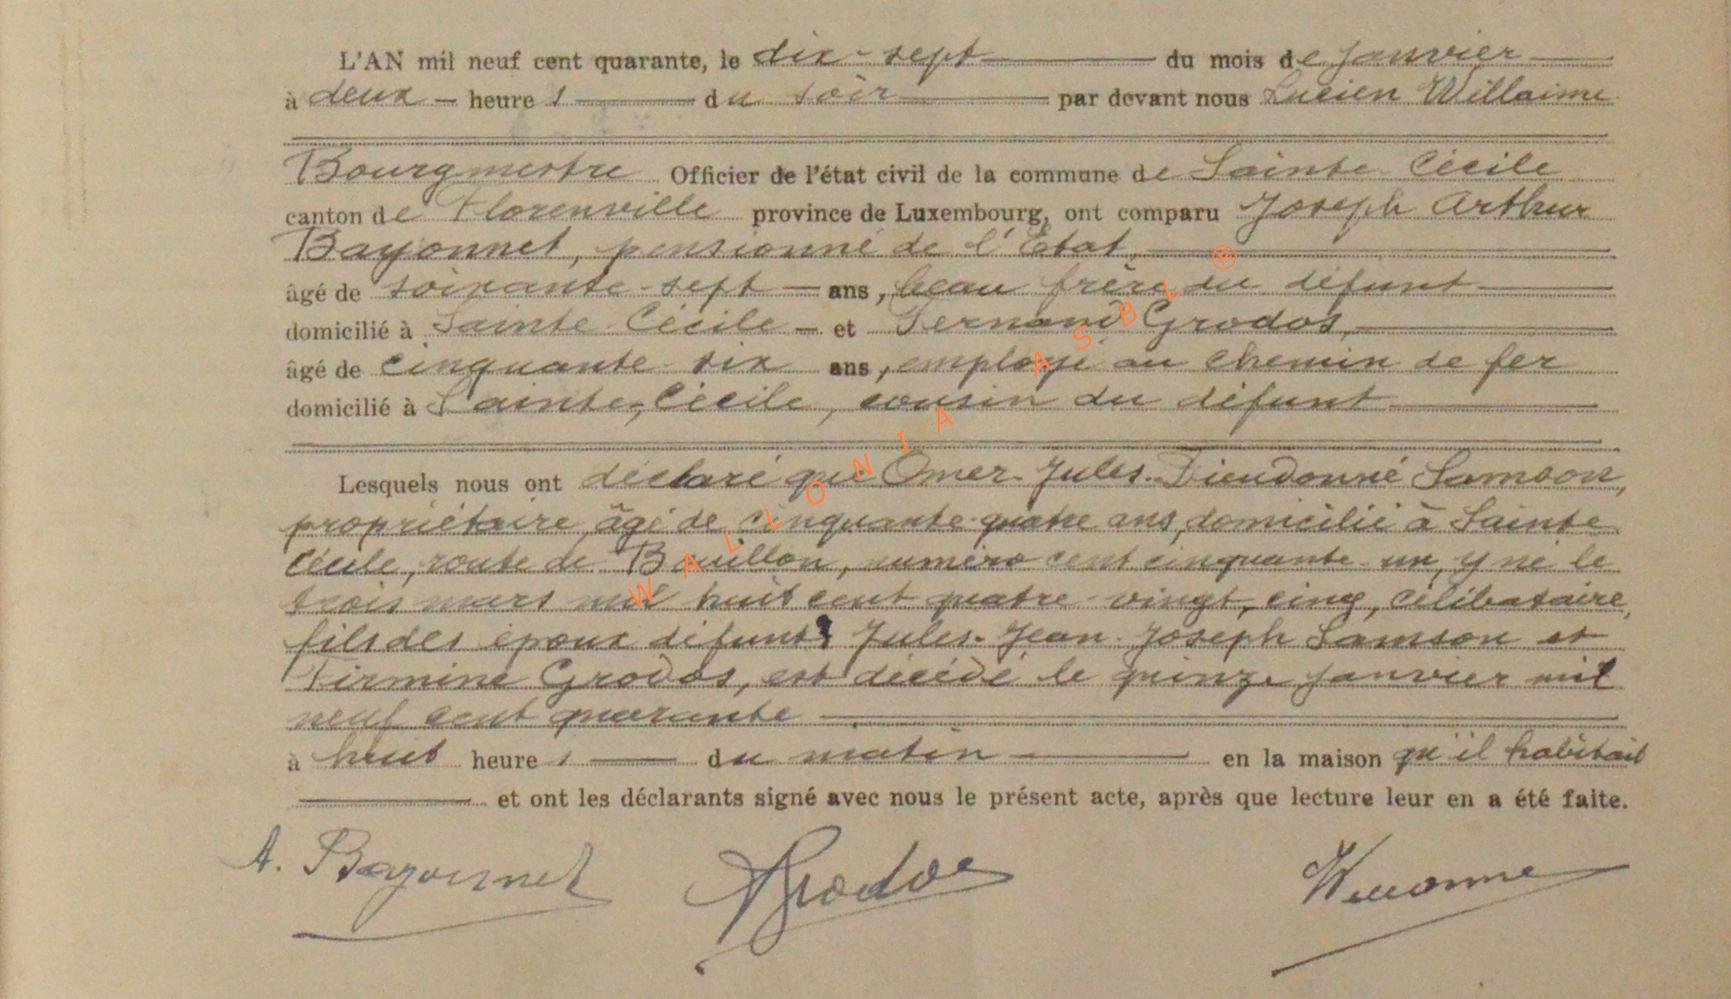 L'AN mil neuf cent quarante, le dix-sept du mois de janvier
à deux heures du soir par devant nous Lucien Willaime
Bourgmestre Officier de l'état civil de la commune de Sainte Cécile
canton de Florenville province de Luxembourg, ont comparu Joseph Arthur
Bayonnet, pensionné de l'Etat,
âgé de soixante-sept ans, beau frère du défunt
domicilié à Sainte Cécile et Fernand Grodos,
âgé de cinquante-six ans, employé au chemin de fer
domicilié à Sainte-Cécile, cousin du défunt
Lesquels nous ont déclaré que Omer-Jules-Dieudonné Samson,
propriétaire, âgé de cinquante-quatre ans, domicilié à Sainte
Cécile, route de Bouillon, numéro cent cinquante-un, y né le
trois mars mil huit cent quatre-vingt-cinq, célibataire,
fils des époux défunts Jules-Jean-Joseph Samson et
Firmine Grodos, est décédé le quinze janvier mil
neuf cent quarante
à huit heures du matin en la maison qu'il habitait
et ont les déclarants signé avec nous le présent acte, après que lecture leur en a été faite.
A. Bayonnet Grodos Willaime
WALLONIA ASBL ®